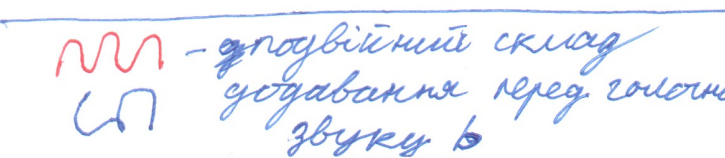 - подвійний склад
додавання перед голосн
звуку ь